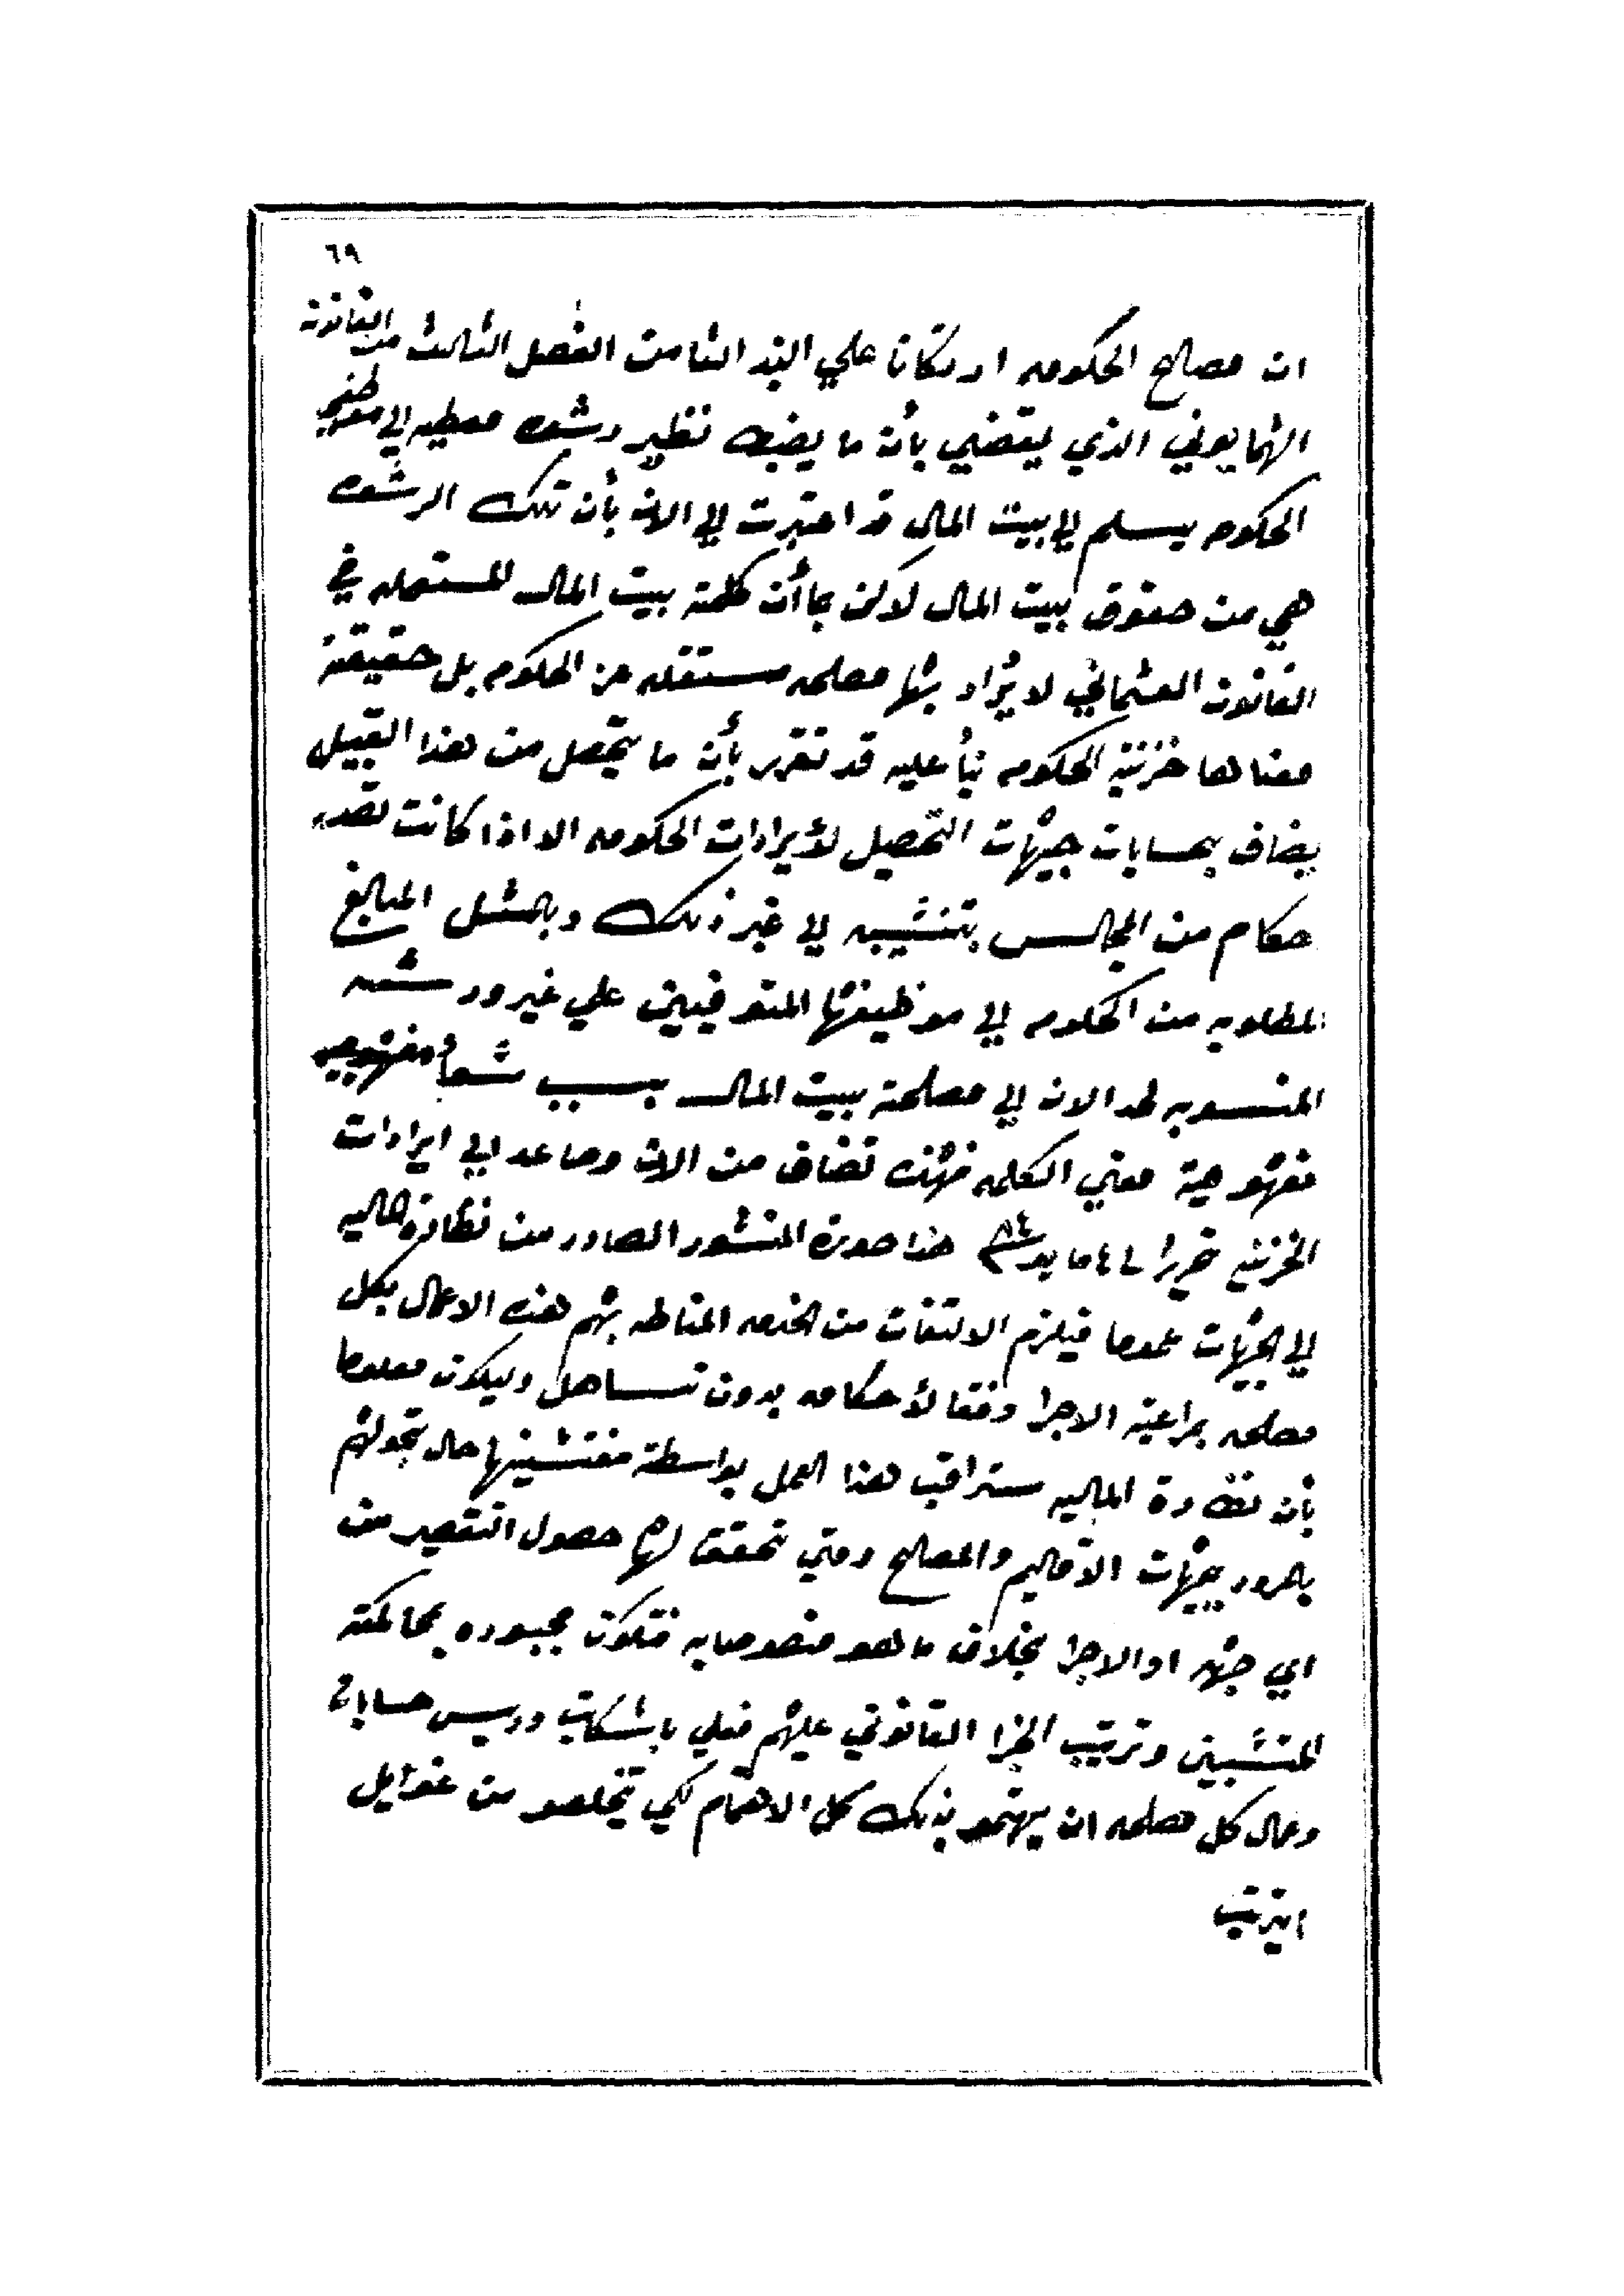 ٦٩
ان مصالح الحكومه ارتكانا علي البند الثامن الفصل الثالث من القانون
الهمايوني الذي يقتضي بأن ما يضبط نظير رشوه معطيه الي موظفي
الحكومه يسلم الي بيت المال قد اعتبرت الي الان بأن تلك الرشوه
هي من حقوق بيت المال لاكن بما أن كلمة بيت المال المستعمله في
القانون العثماني لا يراد بها مصلحه مستقله عن الحكومه بل حقيقة
معناها خزينة الحكومه بنأ عليه قد تقرر بأن ما يتحصل من هذا القبيل
يضاف بحسابات جيهات التحصيل لأيرادات الحكومه الا اذا كانت تصدر
حكام من المجالس بتنسيبه الي غير ذلك وبالمثل المبالغ
المطلوبه من الحكومه الي موظيفها المتوفيين علي غير ورثه
المنسوبه لحد الان الي مصلحة بيت المال بسبب
معني الكلمه فهذه تضاف من الان وصاعد الي ايرادات
الخزينه تحريرا في ٤ مايو سنة ٨٤ هذا صورة المنشور الصادر من نظارة الماليه
الي الجيهات عموما فيلزم الالتفات من الخدمه المناطه بهم هذه الاعمال بكل
مصلحه بمراعية الاجرا وفقا لأحكامه بدون تساهل وليكون معلوما
بأن نظارة الماليه ستراقب هذا العمل بواسطة مفتشينها حال تجولهم
بالمرور بجيهات الاقاليم والمصالح ومتي تحقق لهم حصول التقصير من
اي جهه او الاجرا بخلاف ما هو منصوصا به فتكون مجبوره بمحاكمة
المتسببين وترتيب الجزا القانوني عليهم فعلي باشكاتب وريس حسابات
وعمال كل مصلحه ان يهتمو بذلك كل الاهتمام لكي يخلصو من غوايل